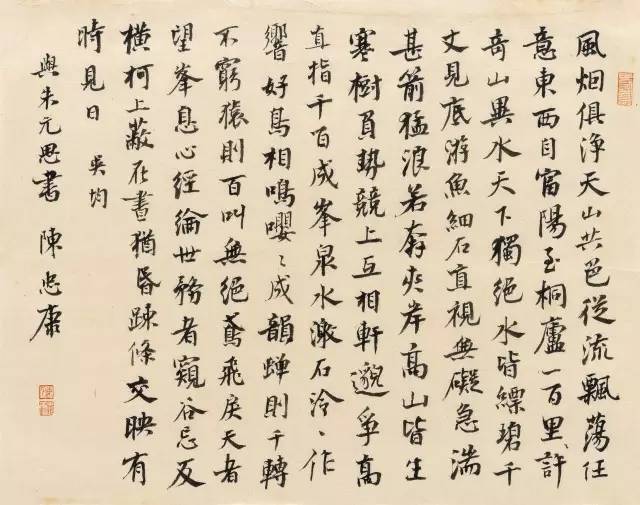 風烟俱淨天山共色從流飄蕩任
意東西自富陽至桐廬一百里許
奇山異水天下獨絶水皆縹碧千
丈見底游魚細石直視無礙急湍
甚箭猛浪若奔夾岸高山皆生
寒樹負勢競上互相軒邈爭高
直指千百成峯泉水激石泠〻作
響好鳥相鳴嚶〻成韻蟬則千轉
不窮猿則百叫無絶鳶飛戾天者
望峯息心經綸世務者窺谷忘反
横柯上蔽在晝猶昏踈條交映有
時見日 吳均
與朱元思書 陳忠康